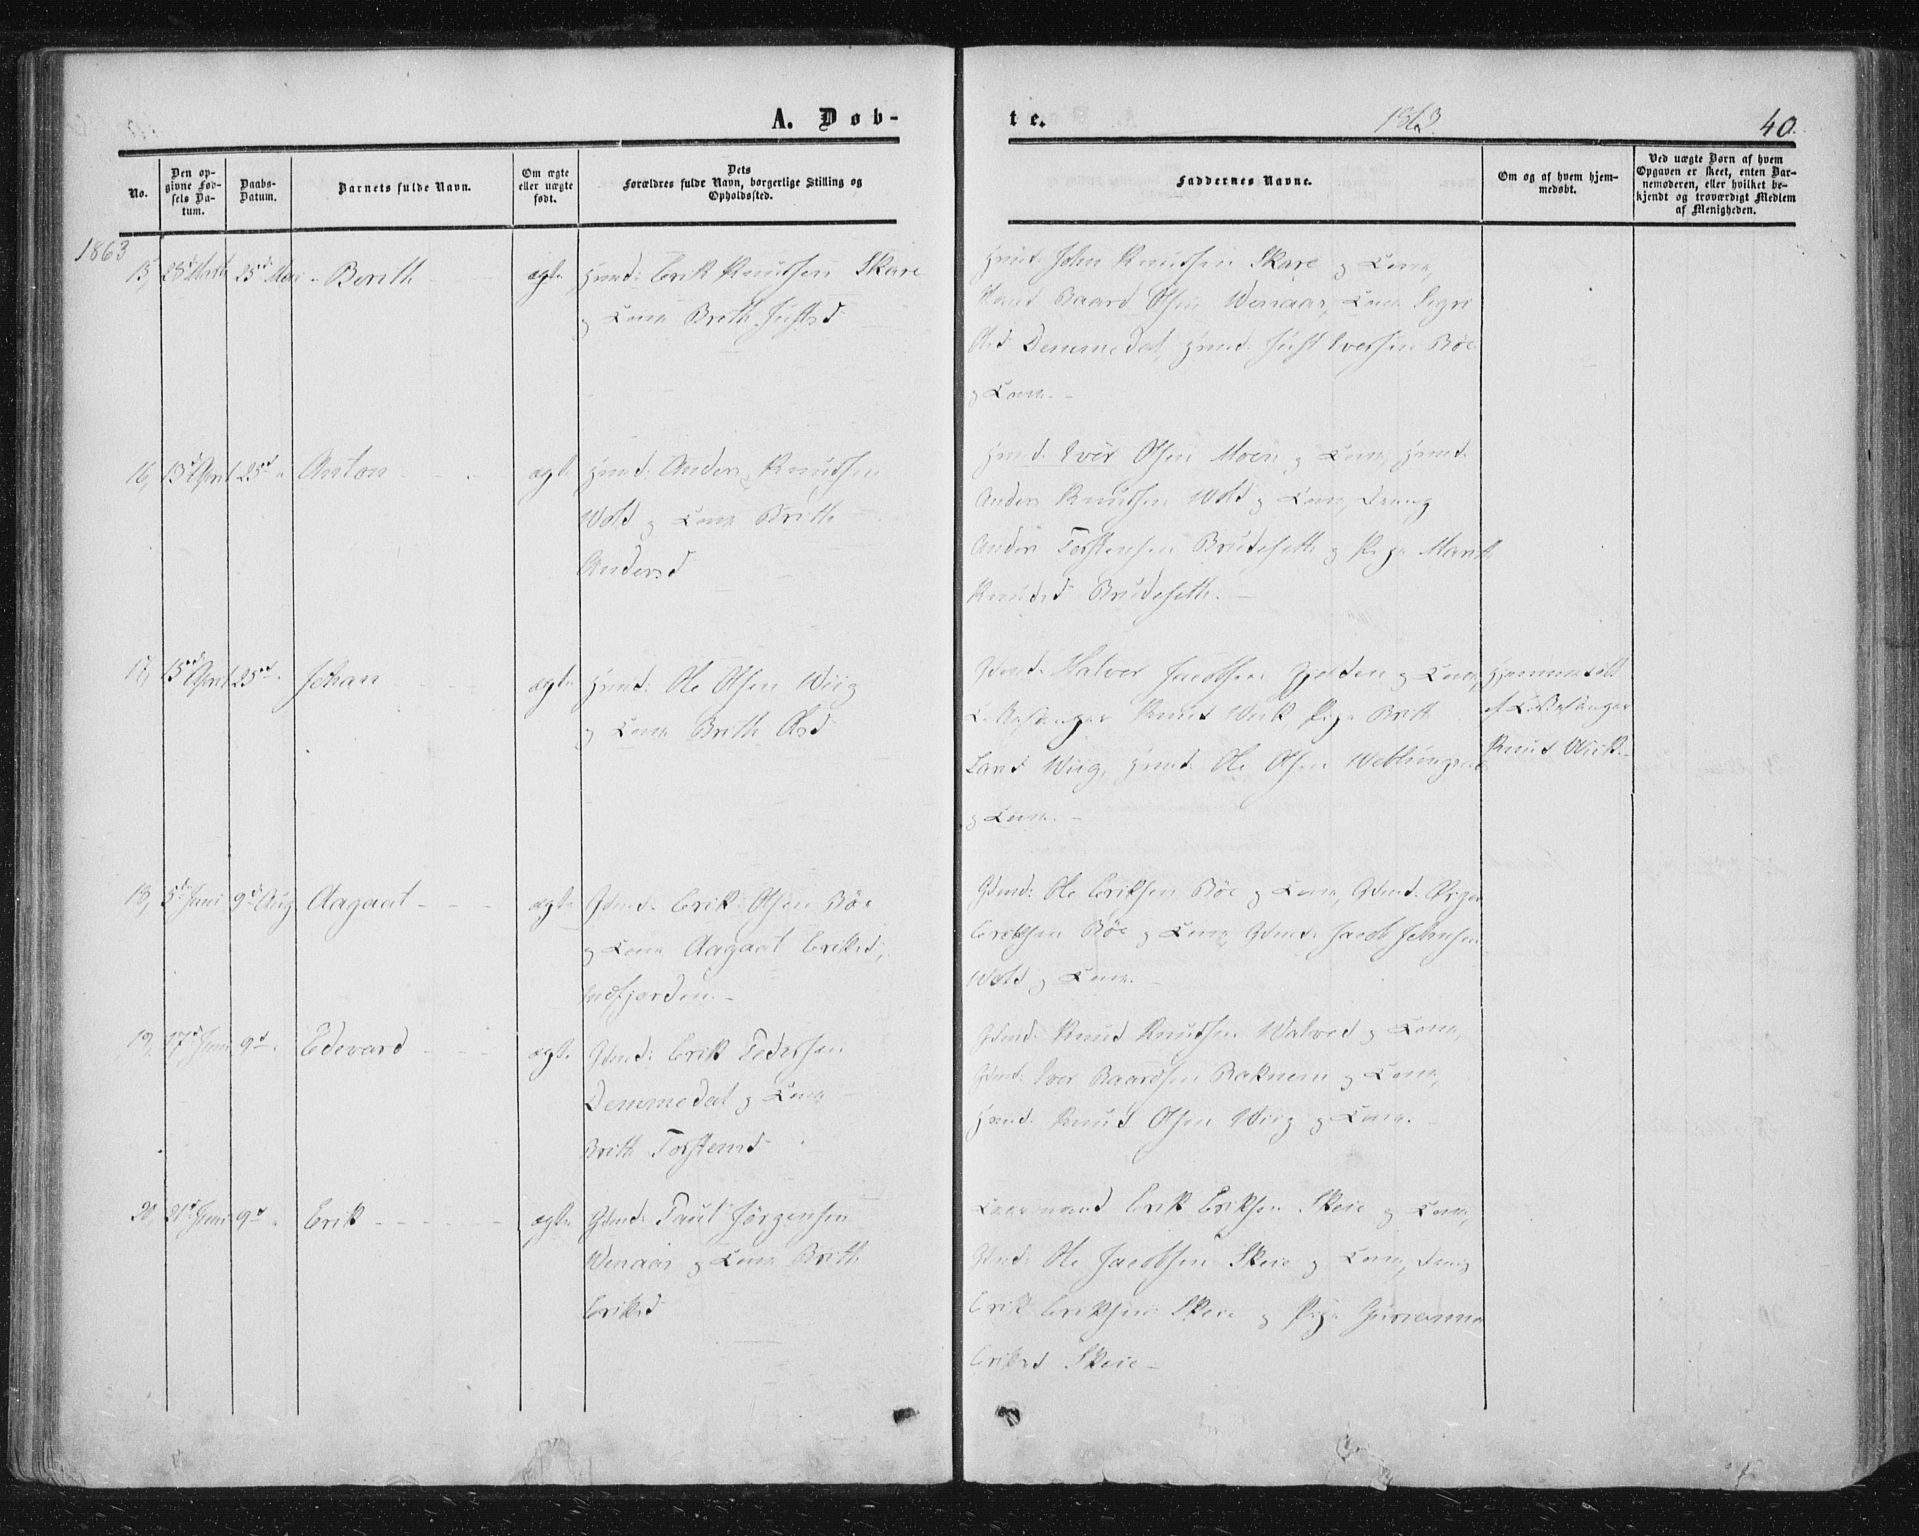 A. Døb-
te.
1863.
40.
No.
Den op-
givne Fød-
sels Da-
tum.
Daabs-
Datum.
Barnets fulde Navn.
Om ægte
eller uægte
født.
Dets
Forældres fulde Navn, borgerlige Stilling og
Opholdssted.
Faddernes Navne.
Om og af hvem hjem-
medøbt.
Ved uægte Børn af hvem
Opgaven er skeet, enten Bar-
nemoderen, eller hvilket be-
kjendt og troværdigt Medlem
af Menigheden.
1863
15, 25 Marts 25d Mai Berith ægte Hmd: Erik Knudsen Skare
og Kone Brith Justsd
Hmd: John Knudsen Skare og Kone,
Baard Olsen Wenaas, Kone Sigri
Olsd Demmedal, Hmd: Just Iversen Böe
og Kone.
16, 13d April 25d Anton ægte Hmd: Anders Knudsen
Wold og Kone Brith
Andersd
Hmd: Iver Olsen Moen og Kone, Hmd:
Anders Knudsen Wold og Kone, Dreng
Anders Torstensen Brudeseth og Pige Marith
Knudsd Brudeseth.
17, 15d April 25d Johan ægte Hmd: Ole Olsen Wiig
og Kone Brith Olsd
Gdmd: Halvor Jacobsen og Kone,
Kirkesanger Knud Wiik Pige Brith
Larsd Wiig, Hmd: Ole Olsen Weblungsnes
og Kone.
Hjemmedöbt
af Kirkesanger
Knud Wiik.
18, 5d Juni 9d Aug Aagaat ægte Gdmd: Erik Olsen Böe
og Kone Aagaat Eriksd,
Indfjorden.
Gdmd: Ole Eriksen Böe og Kone, Gdmd:
Eriksen Böe og Kone Gdmd: Jacob Johnsen
Wold og Kone.
19, 17d Juni 9d Edevard ægte Gdmd: Erik Pedersen
Demmedal og Kone
Brith Torstensd
Gdmd: Knud Knudsen og Kone,
Gdmd: Iver Baardsen Baknem og Kone,
Hmd: Knud Olsen Wiig og Kone.
20, 21d Juni 9d Erik ægte Gdmd: Paul Jörgensen
Wenaas og Kone Brith
Eriksd
Erik Eriksen Skeie og Kone,
Gdmd: Ole Jacobsen Skeie og Kone, Dreng
Erik Eriksen Skeie og Pige Gurianna
Eriksd Skeie